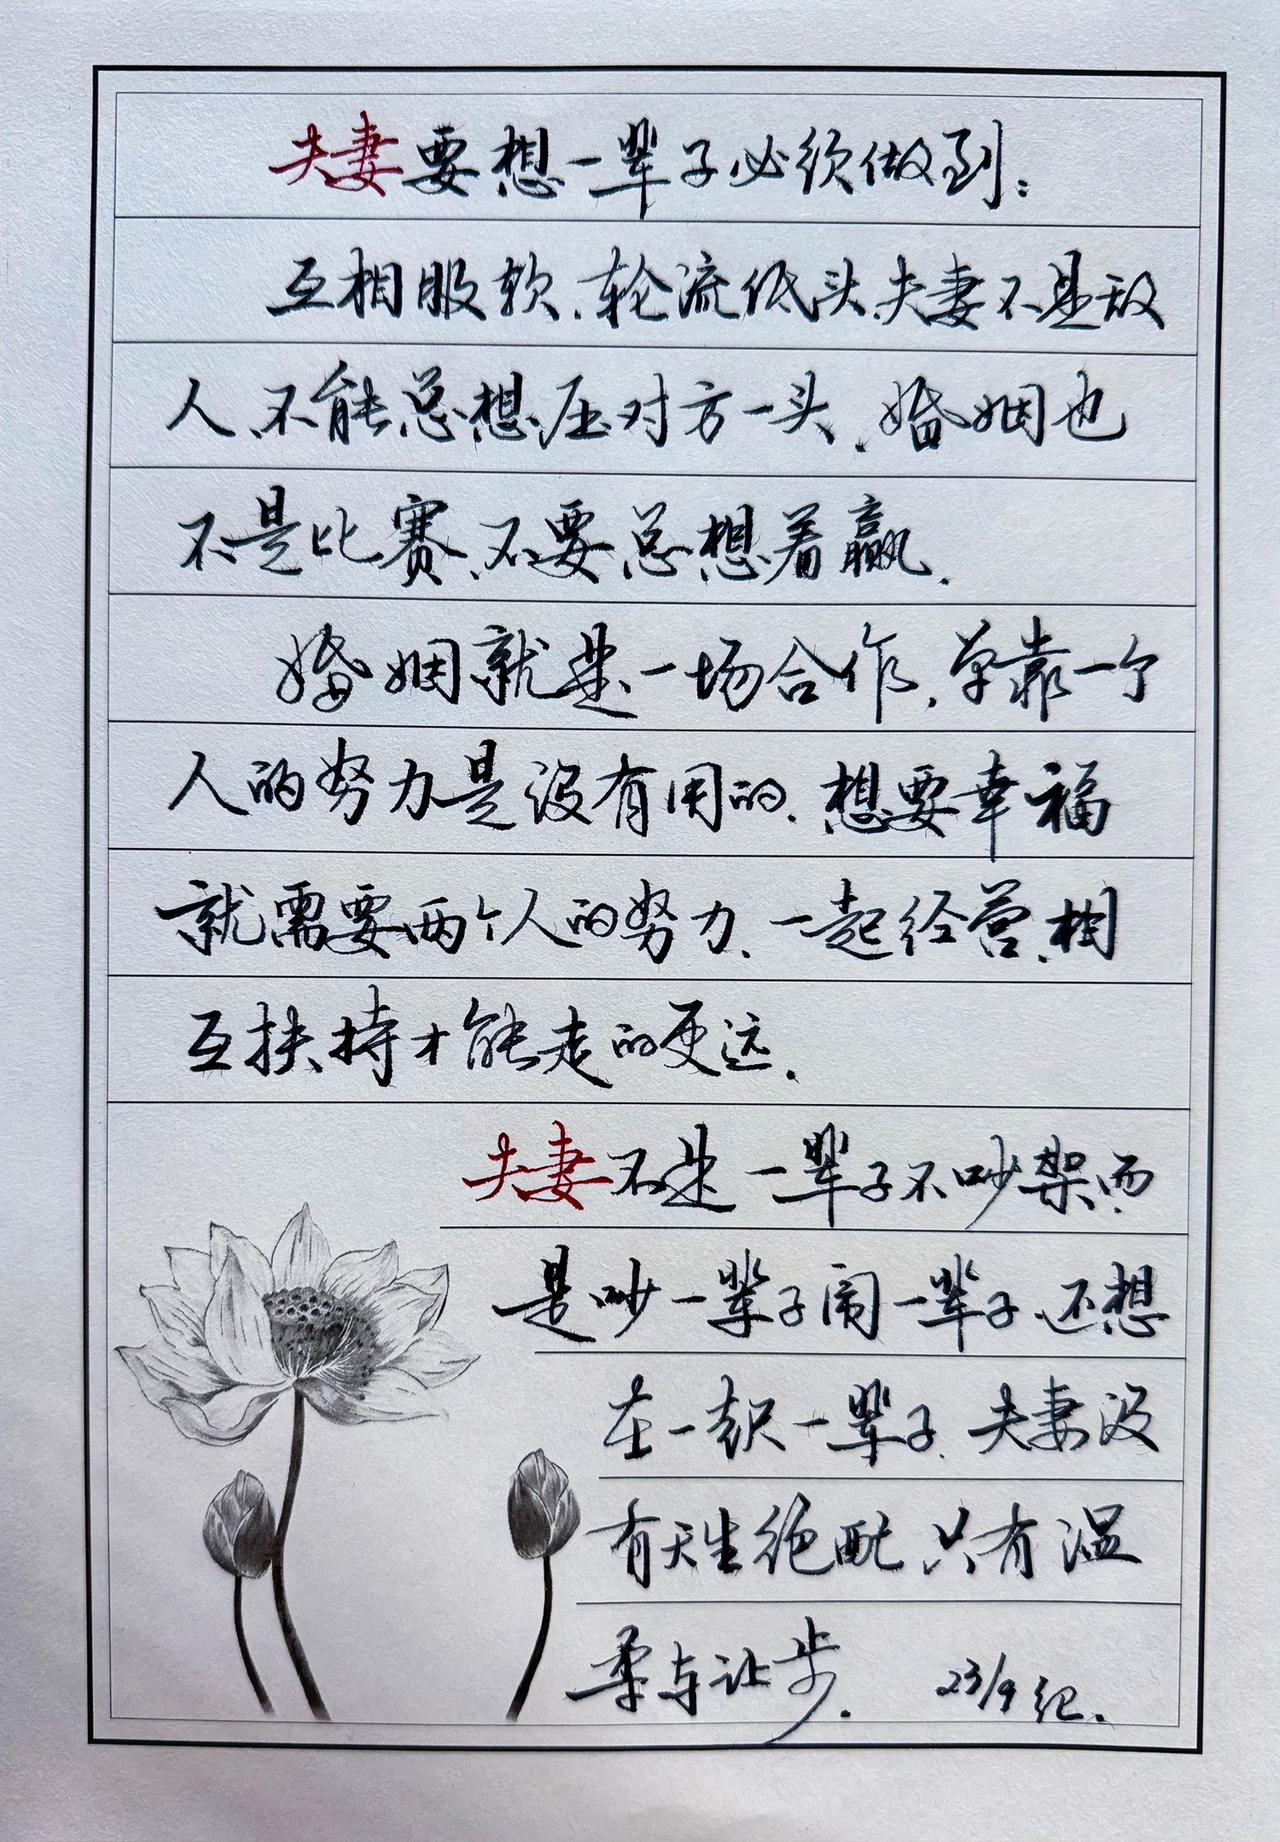 夫妻要想一辈子必须做到：
互相服软、轮流低头、夫妻不是敌
人、不能总想压对方一头、婚姻也
不是比赛、不要总想着赢.
婚姻就是一场合作,单靠一个
人的努力是没有用的.想要幸福
就需要两个人的努力、一起经营、相
互扶持才能走的更远.
夫妻不是一辈子不吵架而
是吵一辈子闹一辈子、还想
在一起一辈子、夫妻没
有天生绝配、只有温
柔与让步. 23/9 纪.